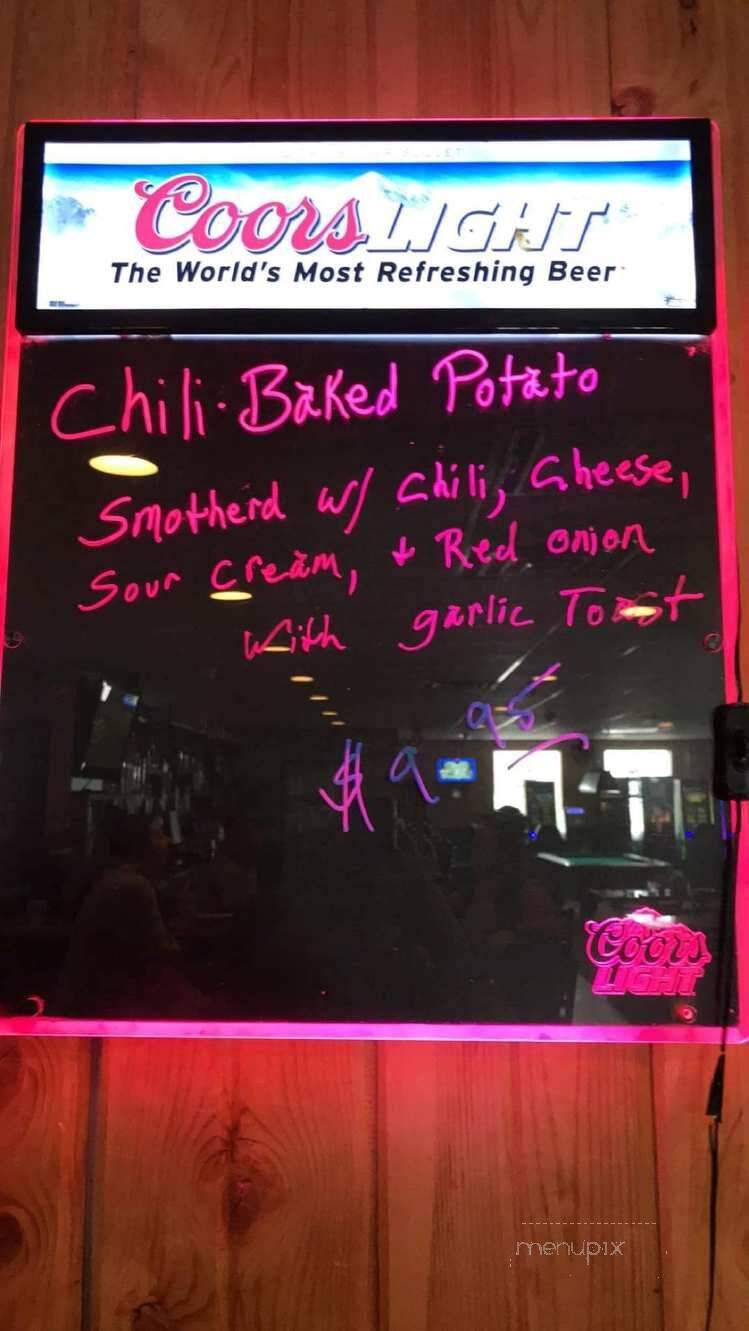 Coors LIGHT
The World's Most Refreshing Beer
Chili-Baked Potato
Smotherd w/ chili, Cheese,
Sour cream, + Red onion
with garlic Toast
$9.95
Coors
LIGHT
menupix